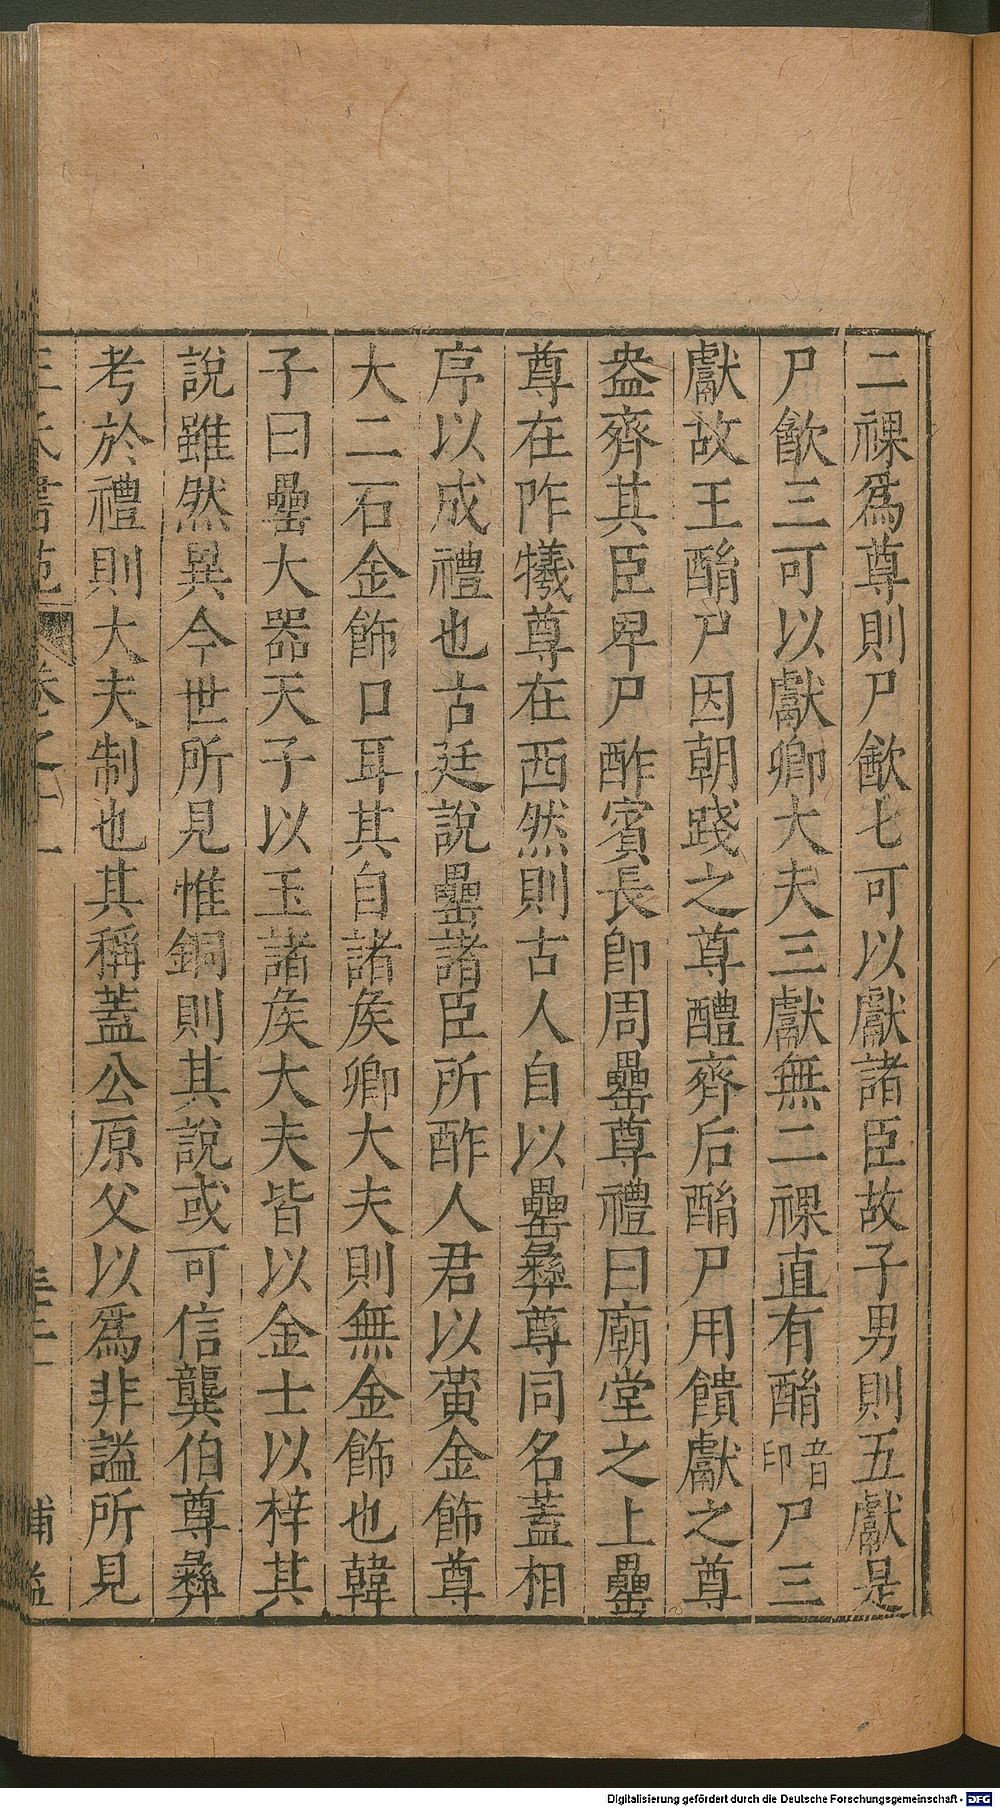 二祼爲尊則尸飮七可以獻諸臣故子男則五獻是
尸飮三可以獻卿大夫三獻無二祼直有酳音印尸三
獻故王酳尸因朝踐之尊醴齊后酳尸用饋獻之尊
盎齊其臣卑尸酢賓長卽周罍尊禮曰廟堂之上罍
尊在阼犧尊在西然則古人自以罍彝尊同名蓋相
序以成禮也古廷說罍諸臣所酢人君以黃金飾尊
大二石金飾口耳其自諸矦卿大夫則無金飾也韓
子曰罍大器天子以玉諸矦大夫皆以金士以梓其
說雖然異今世所見惟銅則其說或可信龔伯尊彝
考於禮則大夫制也其稱蓋公原父以爲非謚所見
王氏書苑 卷之十一 補益
Digitalisierung gefördert durch die Deutsche Forschungsgemeinschaft - DFG